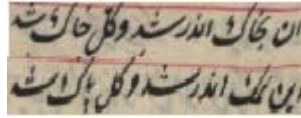 ان بخاک اندر شد و کل خاک شد
این نمک اندر شد و کل پاک شد